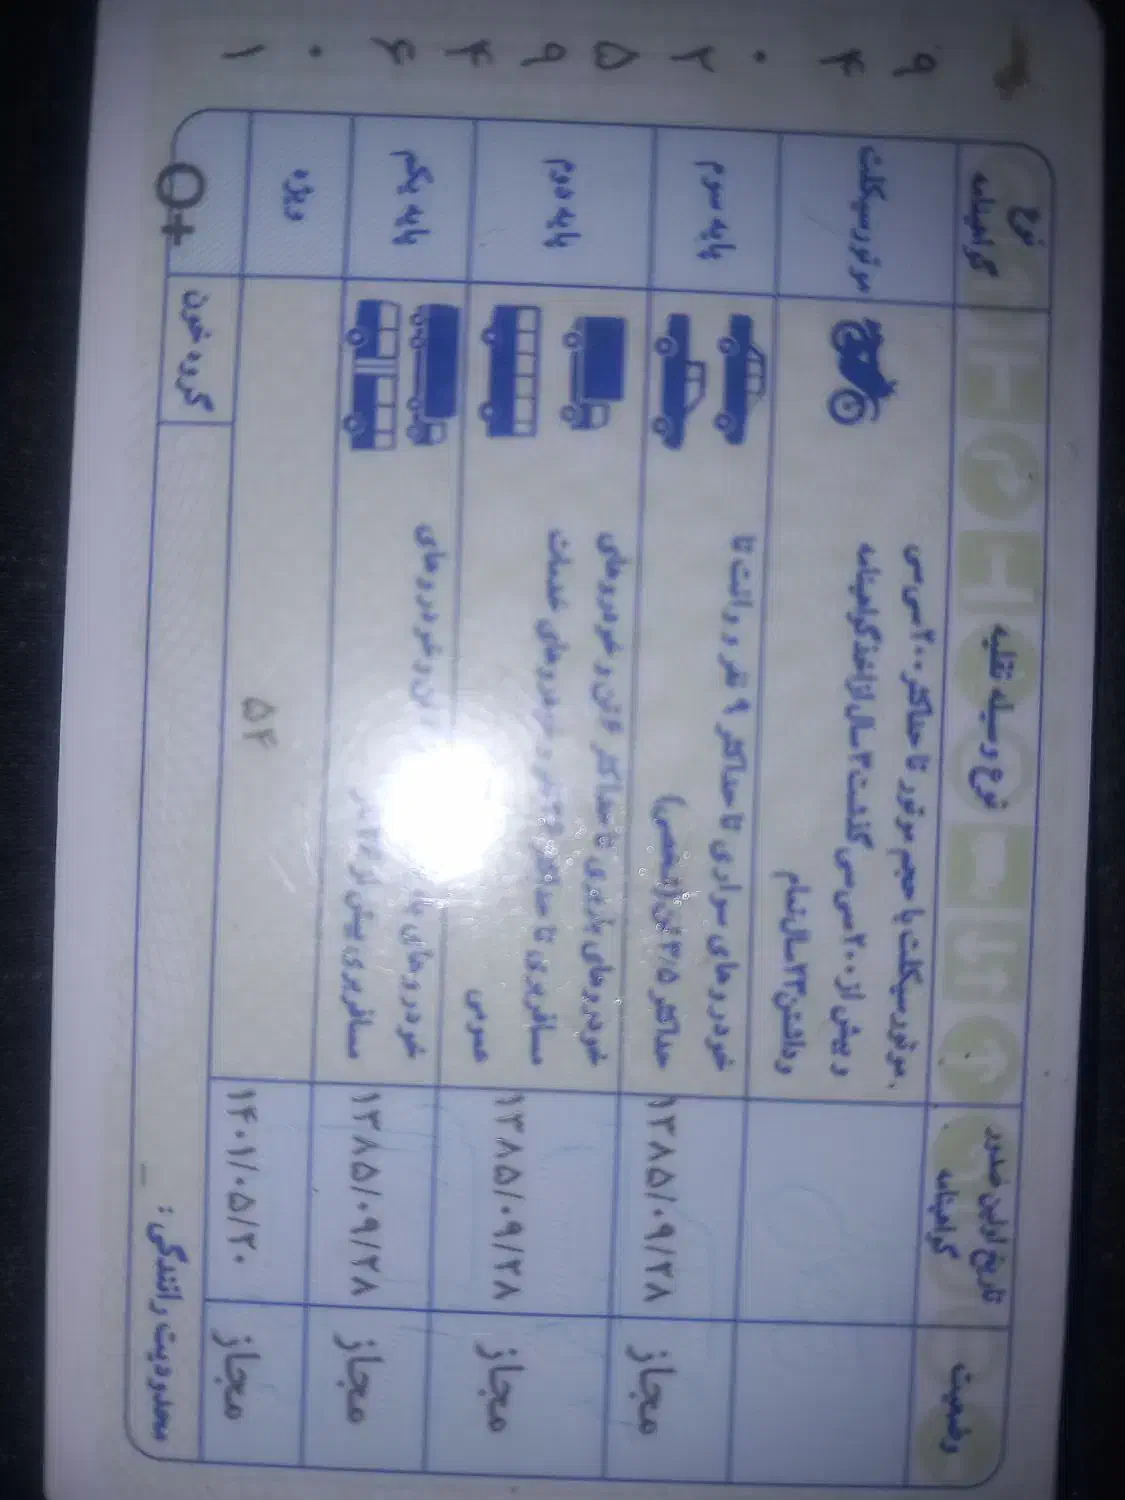 ۹۴۰۲۵۹۴۶۰۱
نوع گواهینامه
نوع وسیله نقلیه
تاریخ اولین صدور گواهینامه
وضعیت
موتورسیکلت
موتورسیکلت با حجم موتور تا حداکثر ۲۰۰ سی سی
و بیش از ۲۰۰ سی سی گذشت ۳ سال از اخذ گواهینامه
و داشتن ۲۳ سال تمام
پایه سوم
خودروهای سواری تا حداکثر ۹ نفر و وانت تا
حداکثر ۳/۵ تن (شخصی)
۱۳۸۵/۰۹/۲۸
مجاز
پایه دوم
خودروهای باربری تا حداکثر ۶ تن و خودروهای
مسافربری تا حداکثر ۲۶ نفر و خودروهای خدمات
عمومی
۱۳۸۵/۰۹/۲۸
مجاز
پایه یکم
خودروهای تن و خودروهای
مسافربری بیش از ۲۶ نفر
۱۳۸۵/۰۹/۲۸
مجاز
ویژه
۵۴
۱۴۰۱/۰۵/۲۰
مجاز
O+
گروه خون
محدودیت رانندگی :